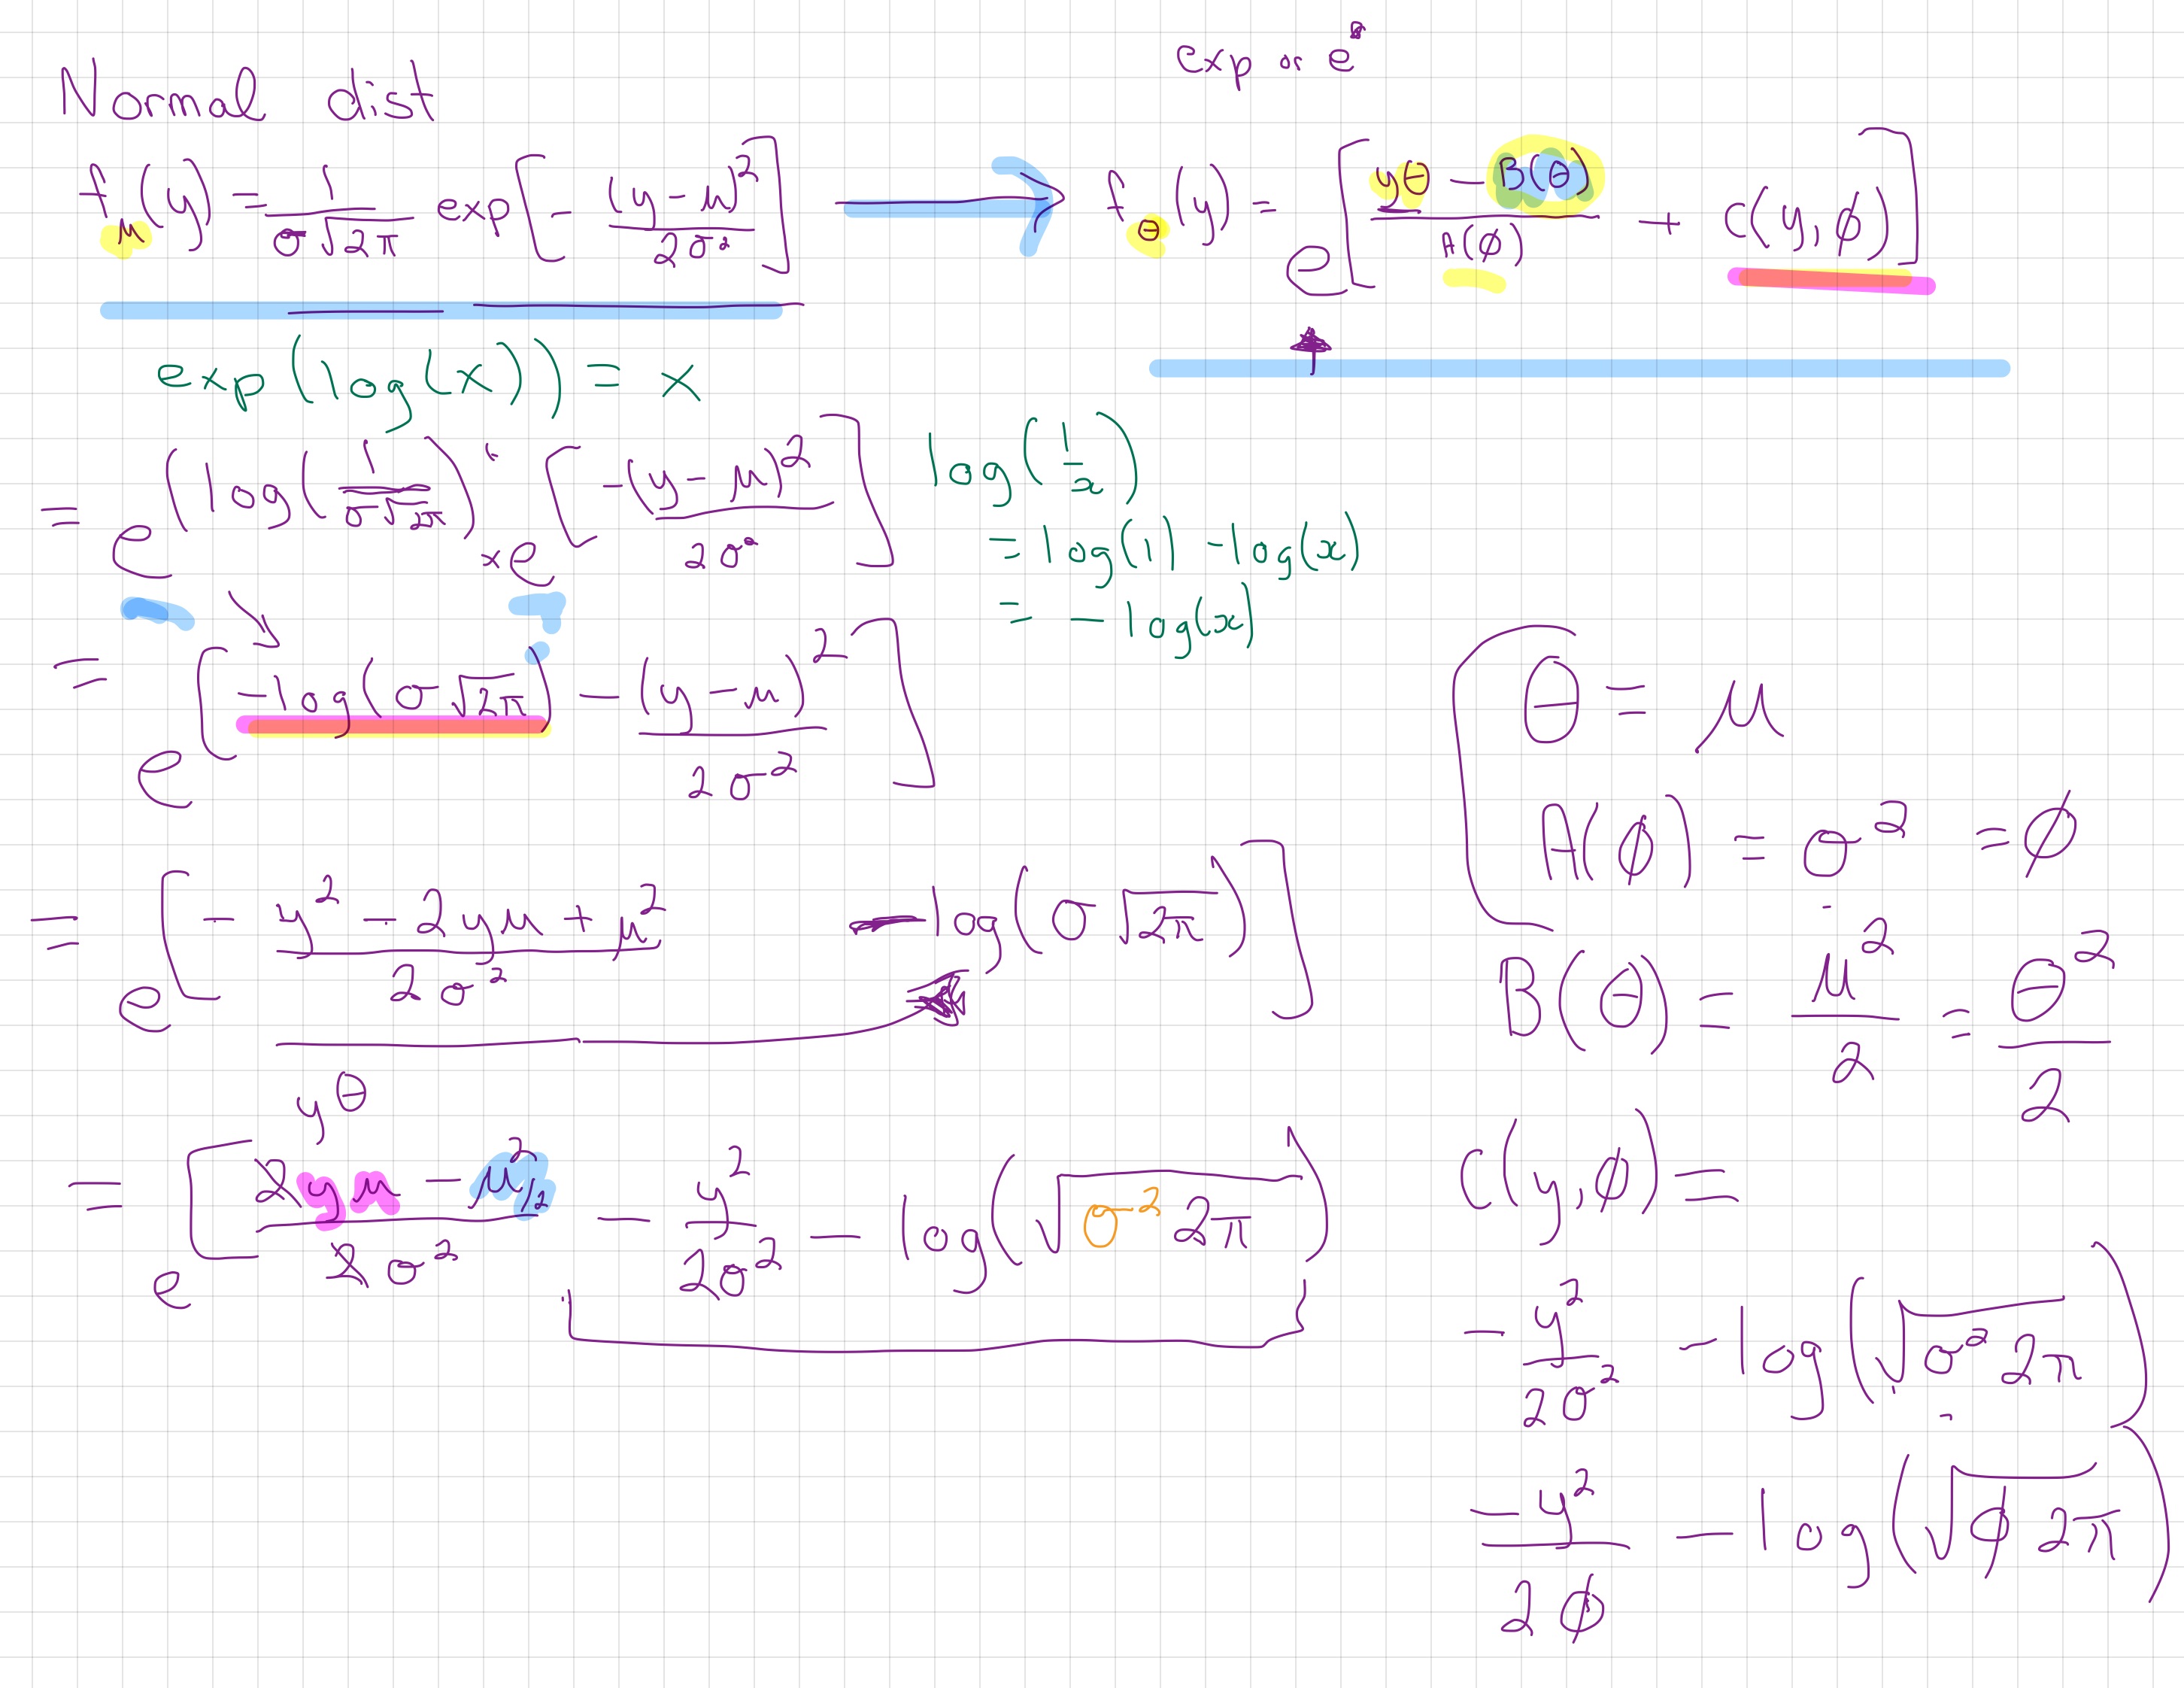 exp or eˣ
Normal dist
f_μ(y) = 1/(σ√2π) exp[-(y-μ)²/2σ²] → f_θ(y) = e^[(yθ - B(θ))/A(φ) + C(y, φ)]
exp(log(x)) = x
= e^(log(1/(σ√2π))) × e^[-(y-μ)²/2σ²]
log(1/x)
= log(1) - log(x)
= -log(x)
= e^[-log(σ√2π) - (y-μ)²/2σ²]
= e^[-(y² - 2yμ + μ²)/2σ² - log(σ√2π)]
yθ
= e^[(2yμ - μ²/2)/2σ² - y²/2σ² - log(√σ²2π)]
θ = μ
A(φ) = σ² = φ
B(θ) = μ²/2 = θ²/2
C(y, φ) =
-y²/2σ² - log(√σ²2π)
-y²/2φ - log(√φ2π)